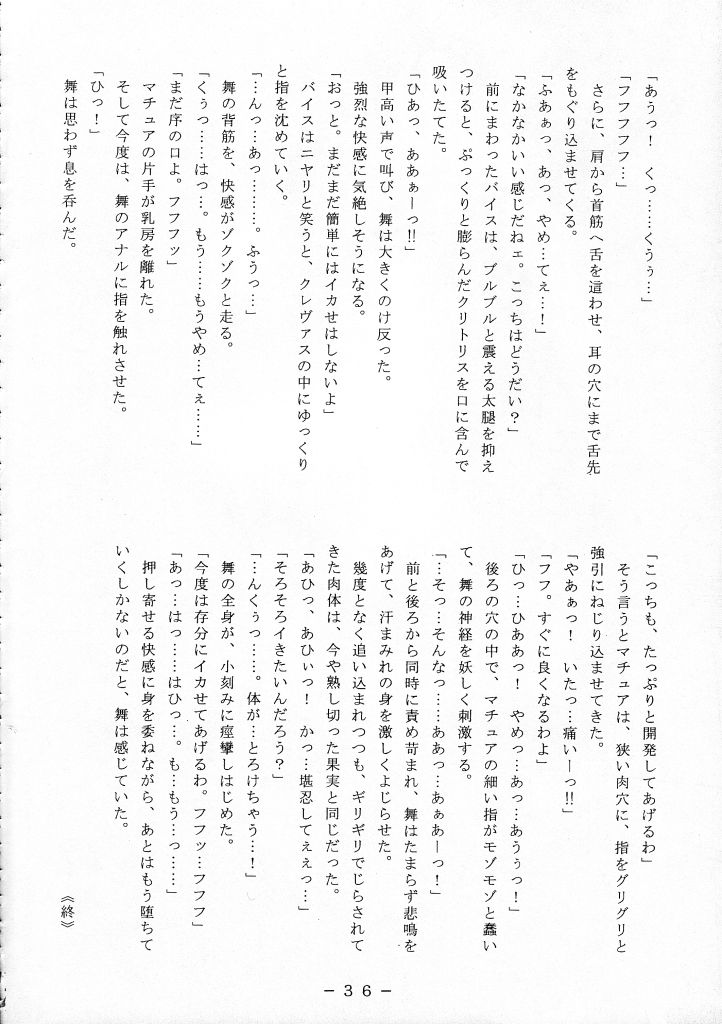 「あぅっ！　くっ……くうぅ…」
「フフフフフ…」
さらに、肩から首筋へ舌を這わせ、耳の穴にまで舌先
をもぐり込ませてくる。
「ふあぁっ、あっ、やめ…てぇ…！」
「なかなかいい感じだねェ。こっちはどうだい？」
前にまわったバイスは、ブルブルと震える太腿を抑え
つけると、ぷっくりと膨らんだクリトリスを口に含んで
吸いたてた。
「ひあっ、ああぁーっ!!」
甲高い声で叫び、舞は大きくのけ反った。
強烈な快感に気絶しそうになる。
「おっと。まだまだ簡単にはイカせはしないよ」
バイスはニヤリと笑うと、クレヴァスの中にゆっくり
と指を沈めていく。
「…んっ…あっ………。ふうっ…」
舞の背筋を、快感がゾクゾクと走る。
「くぅっ……はっ…。もう……もうやめ…てぇ……」
「まだ序の口よ。フフフッ」
マチュアの片手が乳房を離れた。
そして今度は、舞のアナルに指を触れさせた。
「ひっ！」
舞は思わず息を呑んだ。
「こっちも、たっぷりと開発してあげるわ」
そう言うとマチュアは、狭い肉穴に、指をグリグリと
強引にねじり込ませてきた。
「やあぁっ！　いたっ…痛いーっ!!」
「フフ。すぐに良くなるわよ」
「ひっ…ひああっ！　やめっ…あっ…あうぅっ！」
後ろの穴の中で、マチュアの細い指がモゾモゾと蠢い
て、舞の神経を妖しく刺激する。
「…そっ…そんなっ……ああっ…あぁあーっ！」
前と後ろから同時に責め苛まれ、舞はたまらず悲鳴を
あげて、汗まみれの身を激しくよじらせた。
幾度となく追い込まれつつも、ギリギリでじらされて
きた肉体は、今や熟し切った果実と同じだった。
「あひっ、あひぃっ！　かっ…堪忍してぇぇっ…」
「そろそろイきたいんだろう？」
「…んくぅっ……。体が…とろけちゃう…！」
舞の全身が、小刻みに痙攣しはじめた。
「今度は存分にイカせてあげるわ。フフッ…フフフ」
「あっ…はっ……はひっ…。も…もう…っ……」
押し寄せる快感に身を委ねながら、あとはもう堕ちて
いくしかないのだと、舞は感じていた。
《終》
－３６－